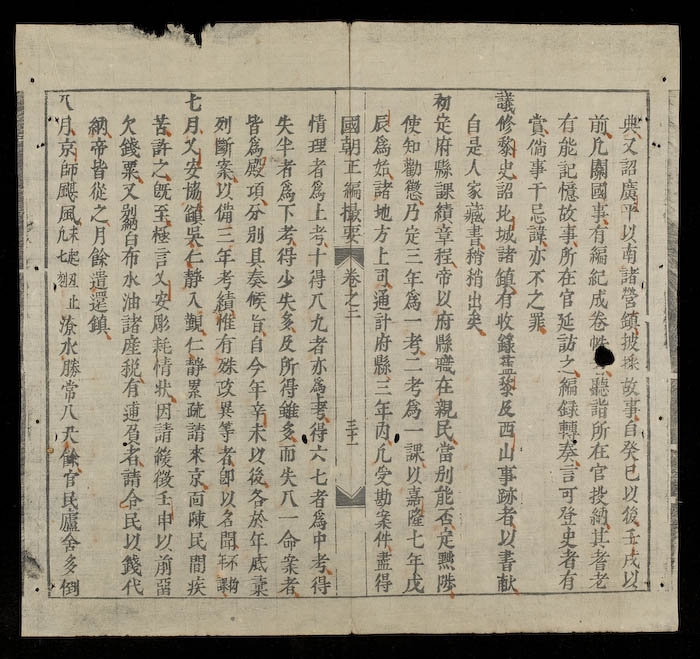 典又詔廣平以南諸營鎮披採故事自癸巳以後壬戌以
前凡關國事有編紀成卷帙聽詣所在官投納其耆老
有能記憶故事所在官延訪之編録轉奏言可登史者有
賞倘事干忌諱亦不之罪
議修黎史詔北城諸鎮有收錄黎及西山事跡者以書献
自是人家藏書稍稍出矣
初定府縣課績章程帝以府縣職在親民當別能否定黜陟
使知勸懲乃定三年為一考二考為一課以嘉隆七年戊
辰為始諸地方上司通計府縣三年內凡受勘案件盡得
國朝正編撮要 卷之三 三十一
情理者為上考十得八九者亦為上考得六七者為中考得
失半者為下考得少失多及所得雖多而失入一命案者
皆為殿項分別具奏候旨自今年辛未以後各於年底彙
列斷案以備三年考績惟有殊政異等者即以名聞不拘年課
七月乂安協鎮吳仁靜入覲仁靜累疏請來京面陳民間疾
苦許之既至極言乂安彫耗情狀因請緩徵壬申以前留
欠錢粟又剝納白布水油諸產稅有逋負者請令民以錢代
納帝皆從之月餘遣還鎮
八月京師颶風未起亥止凡七刻潦水勝常八尺餘官民廬舍多倒